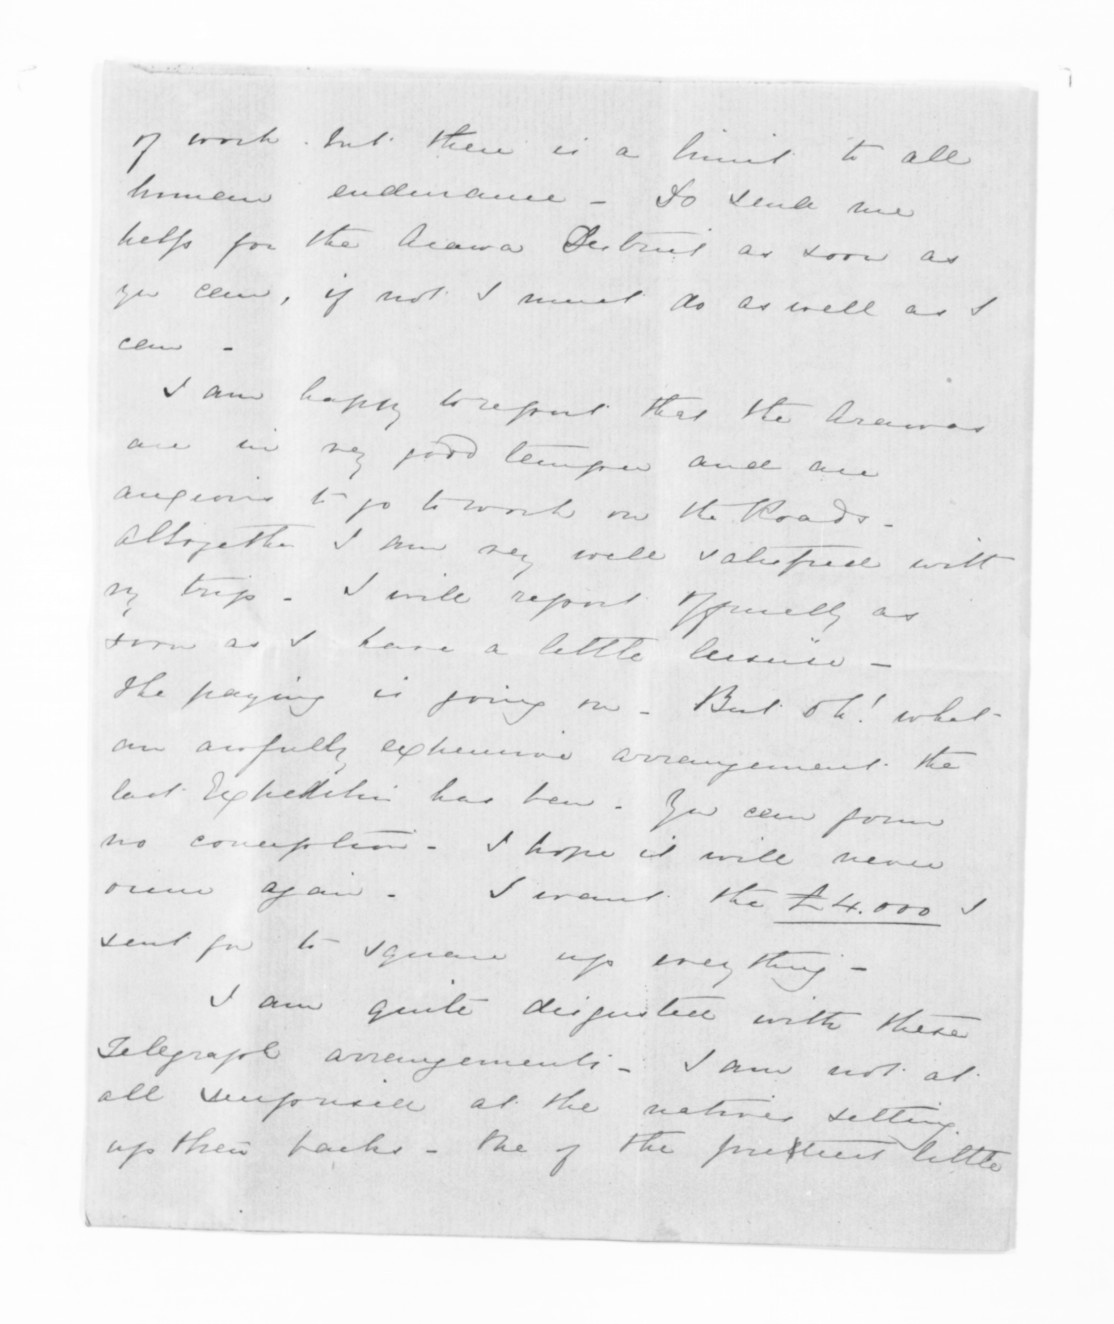 of work. but there is a limit to all
human endurance - Do send me
help for the Arawa District as soon as
you can, if not I must do as well as I
can -
I am happy to report that the Arawas
are in very good temper and are
anxious to go to work on the Roads -
Altogether I am very well satisfied with
my trip - I will report officially as
soon as I have a little leisure -
The paying is going on - But Oh! what
an awfully expensive arrangement the
last Expedition has been - You can form
no conception - I hope it will never
occur again - I want the £4.000 I
sent for to square up everything -
I am quite disgusted with these
Telegraph arrangements - I am not at
all surprised at the natives setting
up their backs - One of the prettiest little